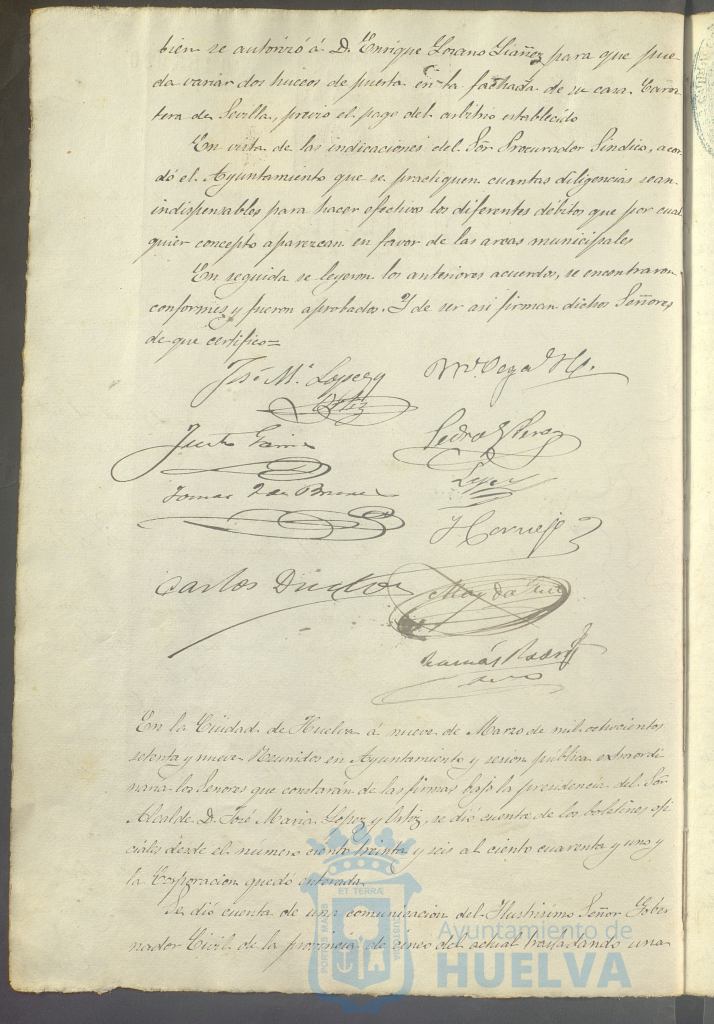 bien se autorizó á D. Enrique Lozano Liañez para que pue-
da variar dos huecos de puerta en la fachada de su casa Carre-
tera de Sevilla, previo el pago del arbitrio establecido
En vista de las indicaciones del Sor. Procurador Sindico, acor-
dó el Ayuntamiento que se practiquen cuantas diligencias sean
indispensables para hacer efectivos los diferentes débitos que por cual
quier concepto aparezcan en favor de las arcas municipales
En seguida se leyeron los anteriores acuerdos, se encontraron
conformes y fueron aprobados. Y de ser asi firman dichos Señores
de que certifico=
José Ma. Lopez y
Ortiz
Justo
Pedro
Lopez
Tomas
Carlos
Tomás Rodri
En la Ciudad de Huelva á nueve de Marzo de mil ochocientos
setenta y nueve Reunidos en Ayuntamiento y sesion pública extraordi-
naria los Señores que constarán de las firmas bajo la presidencia del Sor.
Alcalde D. José Maria López y Ortiz, se dió cuenta de los boletines ofi
ciales desde el numero ciento treinta y seis al ciento cuarenta y uno y
la Corporacion quedó enterada.
Se dió cuenta de una comunicacion del Ilustrisimo Señor Gober
nador Civil de la provincia de cinco del actual trasladando una
PORTUS MARIS
ET TERRÆ
CUSTODIA
Ayuntamiento de
HUELVA